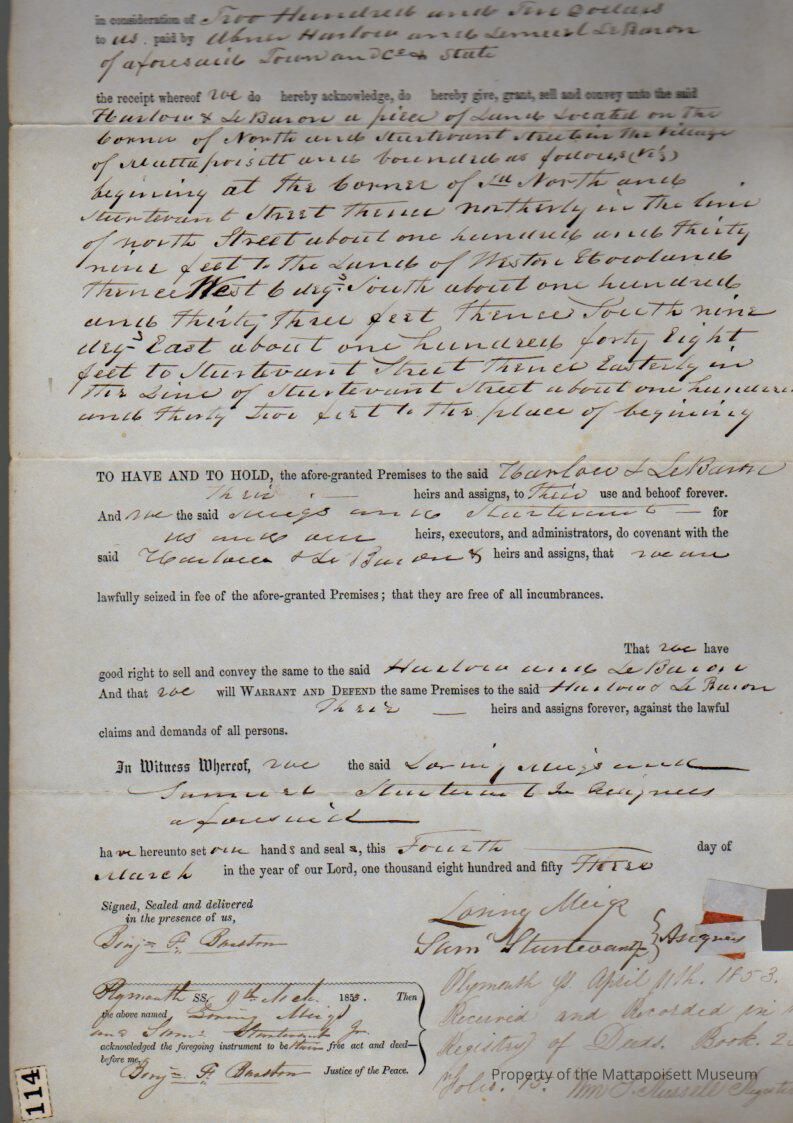 in consideration of Two Hundred and Ten Dollars
to us paid by Abner Harlow and Lemuel LeBaron
of aforesaid Town and Co & State
the receipt whereof we do hereby acknowledge, do hereby give, grant, sell and convey unto the said
Harlow & LeBaron a piece of Land Located on the
Corner of North and Sturtevant Streets in the Village
of Mattapoisett and bounded as follows (viz)
begining at the Corner of sd North and
Sturtevant Street Thence northerly in the line
of north Street about one hundred and thirty
nine feet to the Land of Weston Howland
thence West 6 degs South about one hundred
and thirty three feet Thence South nine
degs East about one hundred forty Eight
feet to Sturtevant Street Thence Easterly in
the Line of Sturtevant Street about one hundred
and thirty two feet to the place of begining
TO HAVE AND TO HOLD, the afore-granted Premises to the said Harlow & LeBaron
Their heirs and assigns, to Their use and behoof forever.
And we the said Meigs and Sturtevant for
us and our heirs, executors, and administrators, do covenant with the
said Harlow & LeBaron & heirs and assigns, that we are
lawfully seized in fee of the afore-granted Premises; that they are free of all incumbrances.
That we have
good right to sell and convey the same to the said Harlow and LeBaron
And that we will WARRANT AND DEFEND the same Premises to the said Harlow & LeBaron
Their heirs and assigns forever, against the lawful
claims and demands of all persons.
In Witness Whereof, we the said Loring Meigs and
Samuel Sturtevant Jr Asignees
aforesaid
have hereunto set our hands and seals, this Fourth day of
March in the year of our Lord, one thousand eight hundred and fifty Three
Signed, Sealed and delivered
in the presence of us,
Benjn F. Barstow
Loring Meigs
Saml Sturtevant Jr } Asignees
Plymouth SS. 9th Mch. 1853. Then
the above named Loring Meigs
and Saml Sturtevant Jr.
acknowledged the foregoing instrument to be their free act and deed—
before me,
Benjn F. Barstow Justice of the Peace.
Plymouth ss. April 11th. 1853.
Received and Recorded in
Registry of Deeds. Book. 2
Folio. 15. Wm S. Russell Register
Property of the Mattapoisett Museum
114